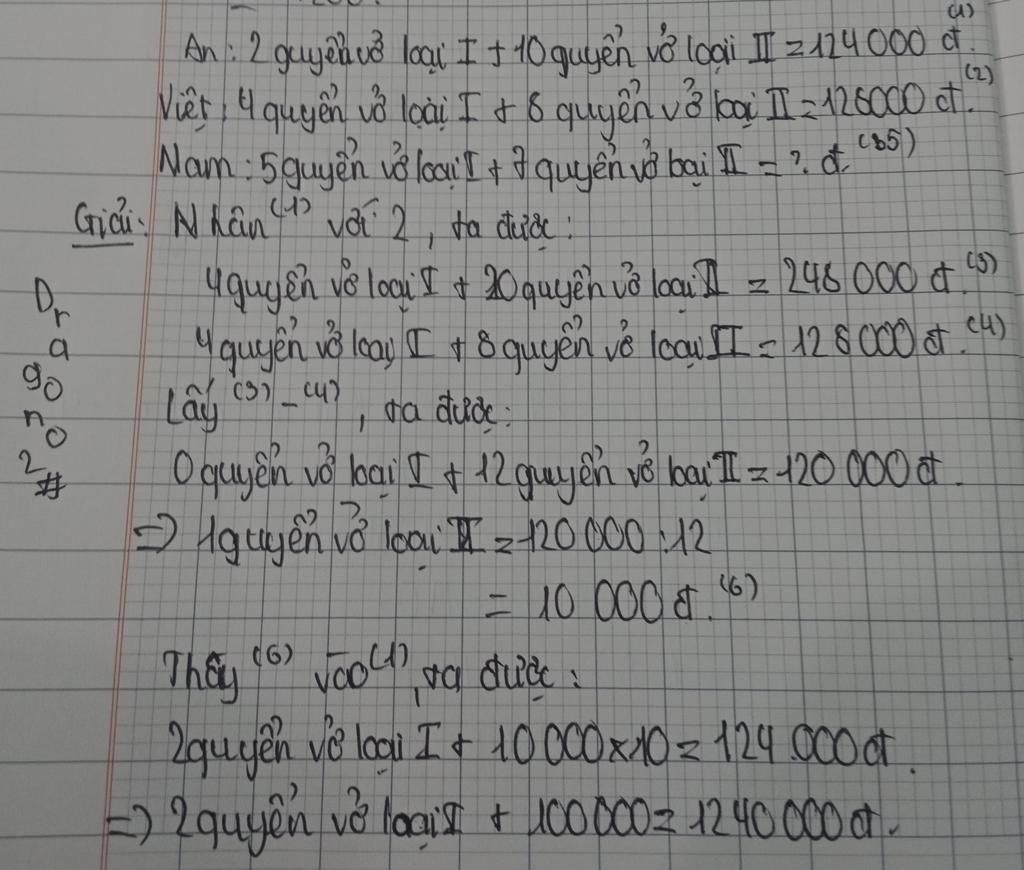 An: 2 quyển vở loại I + 10 quyển vở loại II = 124000 đ. (1)
Việt: 4 quyển vở loại I + 8 quyển vở loại II = 128000 đ. (2)
Nam: 5 quyển vở loại I + 7 quyển vở loại II = ? đ. (35)
Giải: Nhân (1) với 2, ta được:
4 quyển vở loại I + 20 quyển vở loại II = 248 000 đ. (3)
4 quyển vở loại I + 8 quyển vở loại II = 128000 đ. (4)
Lấy (3) - (4), ta được:
0 quyển vở loại I + 12 quyển vở loại II = 120 000 đ.
=> 1 quyển vở loại II = 120 000 : 12
= 10 000 đ. (6)
Thấy (6) vào (1), ta được:
2 quyển vở loại I + 10 000 x 10 = 124.000 đ.
=> 2 quyển vở loại I + 100 000 = 1240 000 đ.
Dragono2#